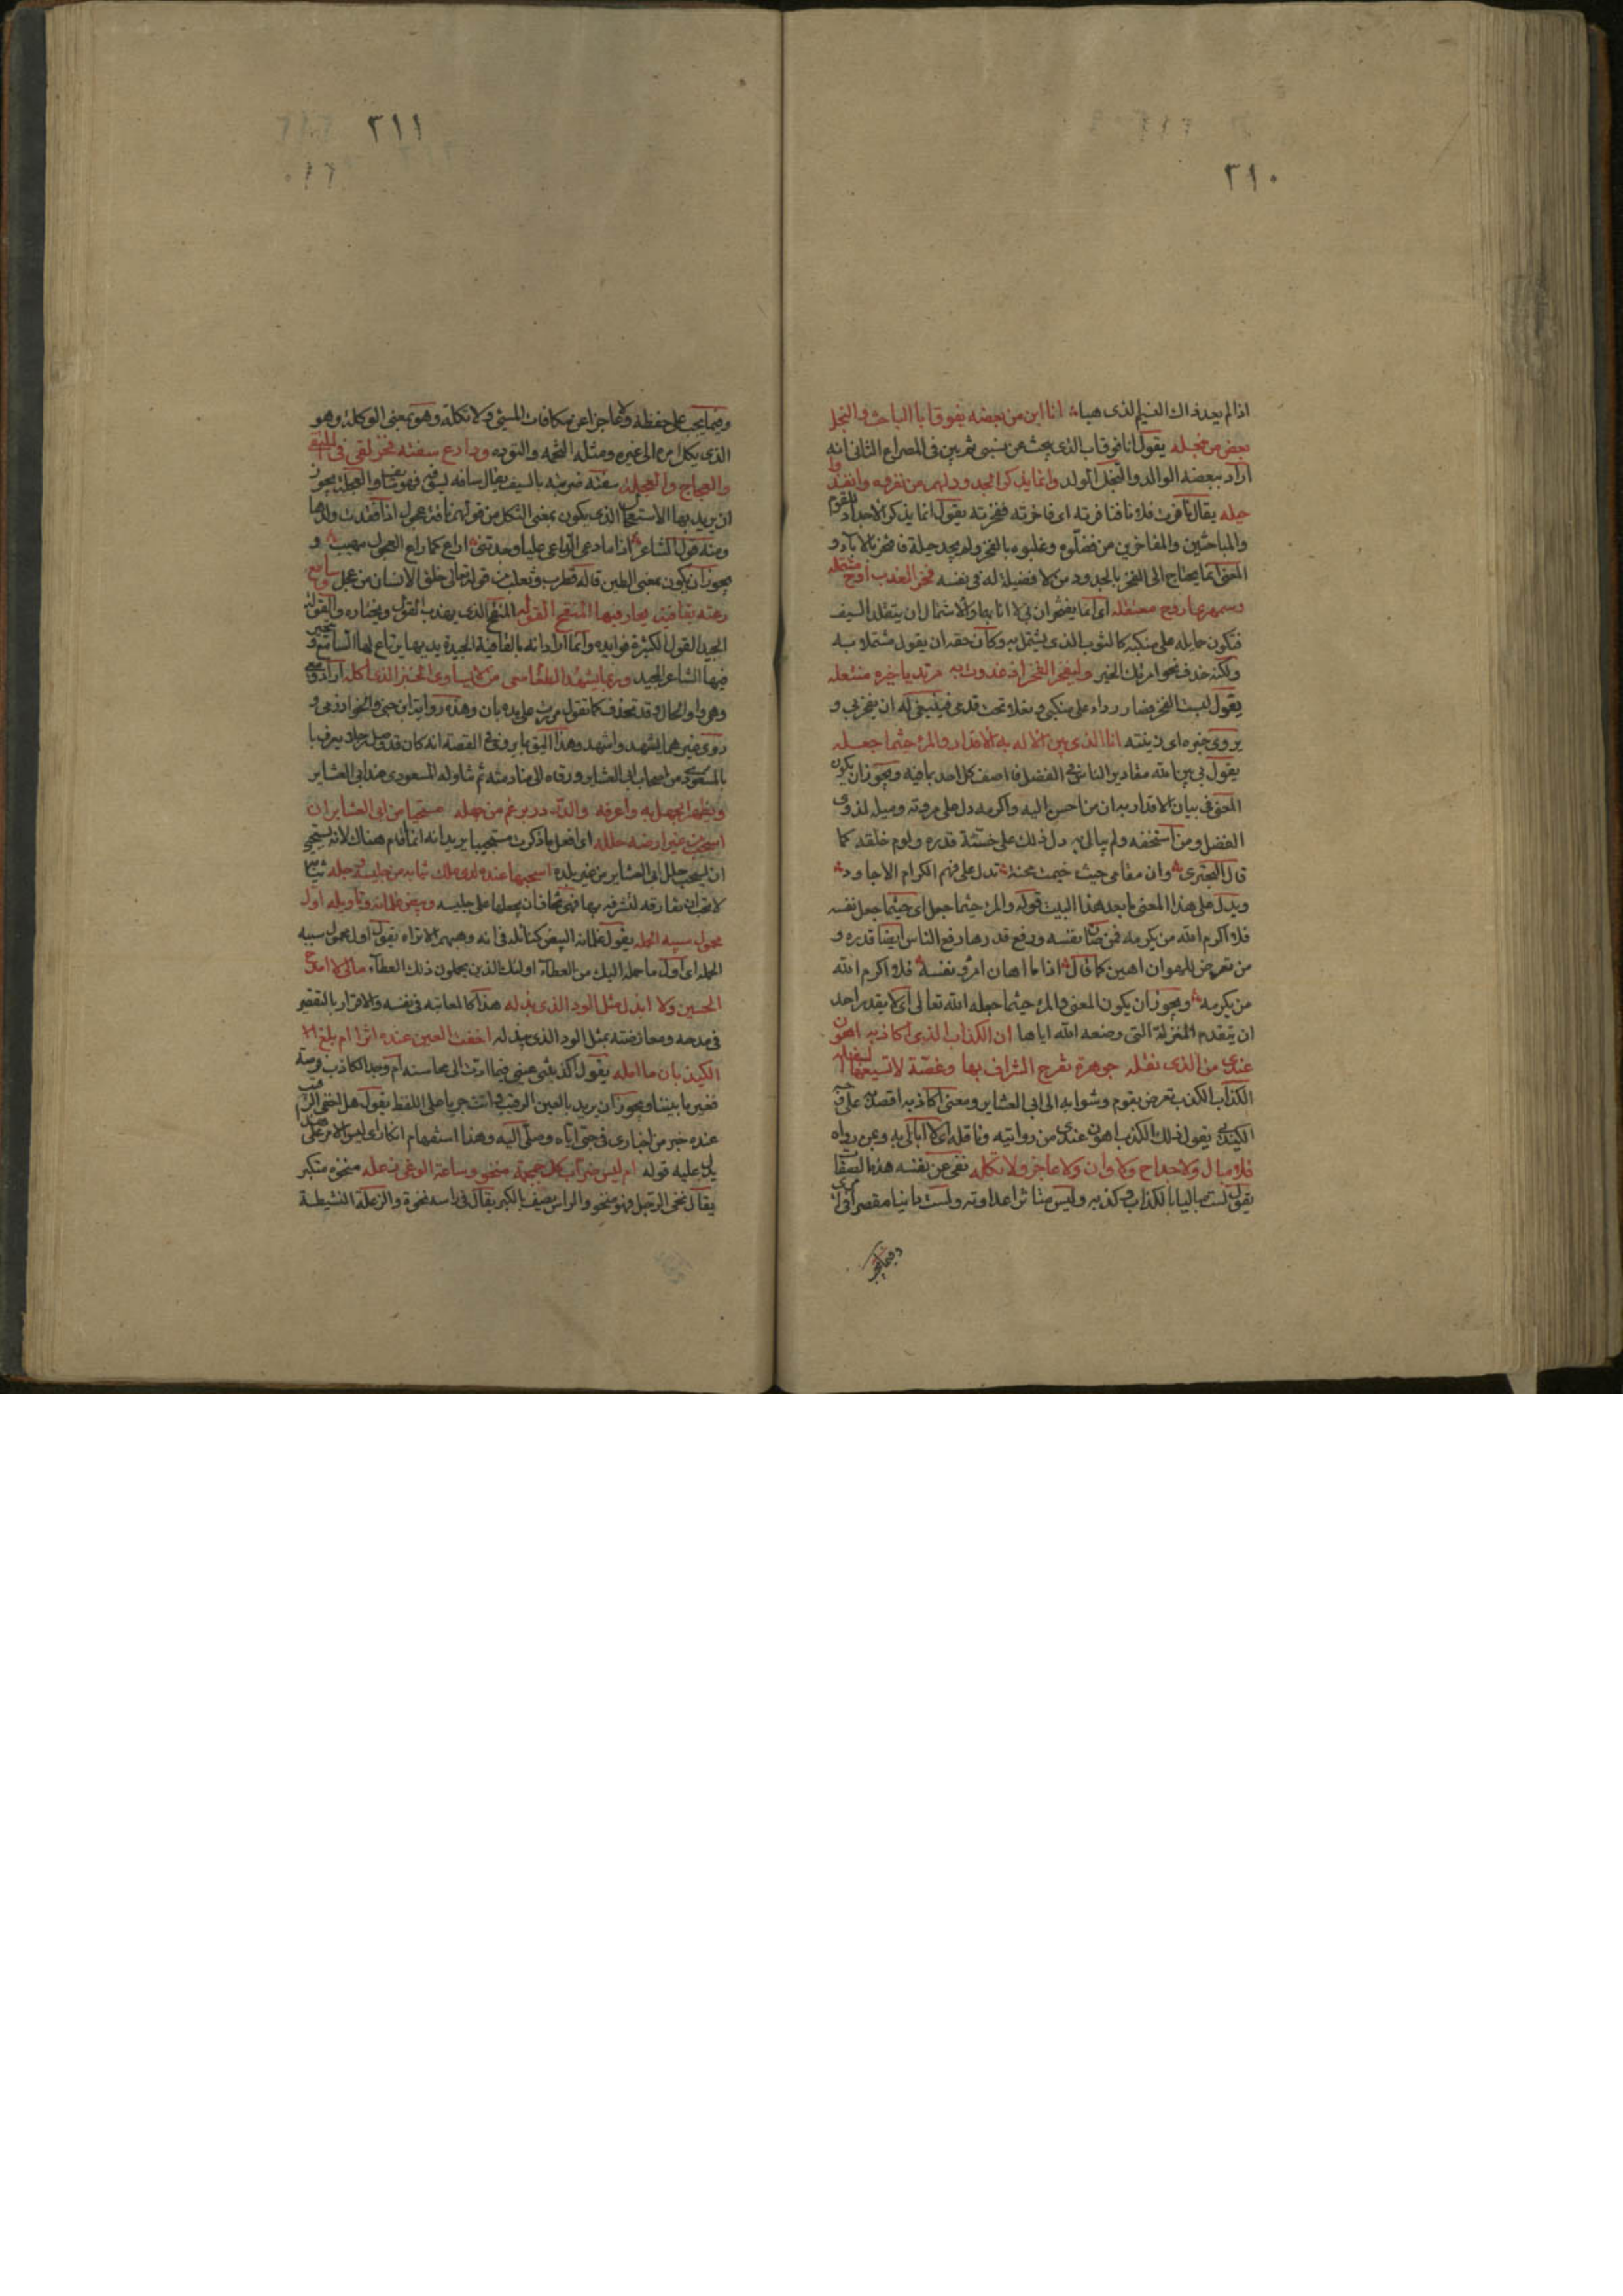 ٣١٠
اذا لم يعد ذاك النسيم الذى هبا انا ابن من بعضه يفوق ابا الباحث والنجل
بعض من نجله يقول انا فوق اب الذى يبحث عن نسبى ثم بين فى المصراع الثانى انه
اراد ببعضه الوالد وبالنجل الولد وانما يذكر الجدود لهم من نفروه وانفدوا
حيله يقال نافرت فلانا فنفرته اى فاخرته ففخرته يقول انما يذكر الاجداد للقوم
والمباحثين والمفاخرين من فضلوه وغلبوه بالفخر ولم يجد حيلة فافتخر بالآباء و
المعنى انما يحتاج الى الفخر بالجدود من لا فضيلة له فى نفسه فخر العضب اروح مشتمله
وسمهرى اروح معتقله اى انما يفخران بى لا انا بهما والاشتمال ان يتقلد السيف
فتكون حمايله على منكبه كالثوب الذى يشتمل به وكان حقه ان يقول مشتملا به
ولكنه حذف نحو امرتك الخير وليفخر الفخر اذ غدوت به مرتديا خيره ومنتعله
يقول لبست الفخر فصار رداء على منكبى ونعلا تحت قدمى فينبغى له ان يفخر بى و
يروى حبره اى زينته انا الذى بين الاله به الاقدار والمرء حيثما جعله
يقول بى بين الله مقادير الناس فى الفضل فاصف كل احد بما فيه ويجوز ان يكون
المعنى فى بيان الاقدار به ان من احسن اليه واكرمه دل على مروته وميله لذوى
الفضل ومن استخفه ولم يبال به دل ذلك على خسة قدره ولوم خلقه كما
قال البحترى وان مقامى حيث خيمت محنة تدل على فهم الكرام الاجاود
ويدل على هذا المعنى ما بعد هذا البيت قوله والمرء حيثما جعل اى حيثما جعل نفسه
فلا اكرم الله من يكرمه فمن صان نفسه ورفع قدرها رفع الناس ايضا قدره و
من تعرض للهوان اهين كما قال اذا ما اهان امرؤ نفسه فلا اكرم الله
من يكرمه ويجوز ان يكون المعنى والمرء حيثما جعله الله تعالى اى لا يقدر احد
ان يتقدم المنزلة التى وضعه الله اياها ان الكذاب الذى اكاد به اهون
عندى من الذى نقله جوهرة تفرح الشراف بها وغصة لا تسيغها السفله
الكذاب الكذب تعرض بقوم وشوا به الى ابى العشاير ومعنى اكاد به اقصد به على وجه
الكيد يقول ذلك الكذب اهون عندى من روايته وناقله اى لا ابالى به وبمن رواه
فلا مبال ولا مداج ولا وان ولا عاجز ولا تكله نفى عن نفسه هذه الصفات
يقول لست مباليا بالكذاب وكذبه وليس مداجيا ساتر عداوته ولست وانيا مقصرا فى امرى
وفيما يجب
٣١١
وفيما يجب على حفظه ولا عاجزا عن مكافات المسئ ولا تكلة وهو بمعنى الوكلة وهو
الذى يكل امره الى غيره ومثله التخمه والتوده ودارع سفته فخر لقى فى الملتقى
والعجاج والعجله سفته ضربته بالسيف يقال سافه يسيفه فهو سايف والعجلة يجوز
ان يريد بها الاستعجال الذى يكون بمعنى الثكل من قولهم ناقة عجول اذا فقدت ولدها
ومنه قول الشاعر اذا ما دعى الداعى عليا وجدتنى اراع كما راع العجول مهيب و
يجوز ان يكون بمعنى الطين قاله قطرب وثعلب من قوله تعالى خلق الانسان من عجل وسامع
رعته بقافية يحار فيها المنقح القوله المنقح الذى يهذب القول ويختاره والقوله
الجيد القول الكثيرة فوايده وانما اراد انه بالقافية الجيدة يديرها يرتاع لها السامع ويتحير
فيها الشاعر المجيد وربما يشهد الطعام معى من لا يساوى الخبز الذى اكله اراد
وهو واو الحال وقد تحذف كما تقول مررت على يده باز وهذه رواية ابن جنى والخوارزمى و
روى غيرهما يشهد واشهد وهذا اليق بما يروى فى القصة انه كان قد وصل رجلا يعرف با
بالمسعودى من اصحاب ابى العشاير ورقاه الى منادمته ثم تناوله المسعودى عند ابى العشاير
ويظهر الجهل بى واعرفه والدر در برغم من جهله مستحييا من ابى العشاير ان
اسحب فى غير ارضه حلله اى افعل ما ذكرت مستحييا يريد انه انما اقام هناك لانه يستحيى
ان يسحب حلل ابى العشاير من غير بلده اسحبها عنده لدى ملك ثيابه من جليسه وجله ثيابه
لا تحب ان تفارقه لتشرفه بها فهى تخاف ان يجعلها على جليسه وبيض غلمانه وتاويله اول
محمول سيبه الحمله يقول غلمانه البيض كنائله فى انه وهبهم الا تراه يقول اول محمول سيبه
الحمله اى اول ما حمله اليك من العطاء اولئك الذين يحملون ذلك العطاء مالى لا امدح
الحسين ولا ابذل مثل الود الذى بذله هذا كالمعاتبة فى نفسه والاقرار بالتقصير
فى مدحه ومعارضته بمثل الود الذى بذله اخفت العين عنده اثرا ام بلغ
الكيذبان ما امله يقول اكذبتنى عينى فيما ادت الى محاسنه ام وجد الكاذب فرصة
فغير ما بيننا ويجوز ان يريد بالعين الرقيب وانث جريا على اللفظ يقول هل اخفى الرقيب
عنده خبر من اخبارى فى حبى اياه وميلى اليه وهذا استفهام انكار اى ليس الامر على
يدل عليه قوله ام ليس ضراب كل جمجمة منخوة وساعة الوغى زعله منخوة متكبر
يقال نخى الرجل فهو منخو والراس يوصف بالكبر يقال فى راسه نخوة والزعلة النشيطة